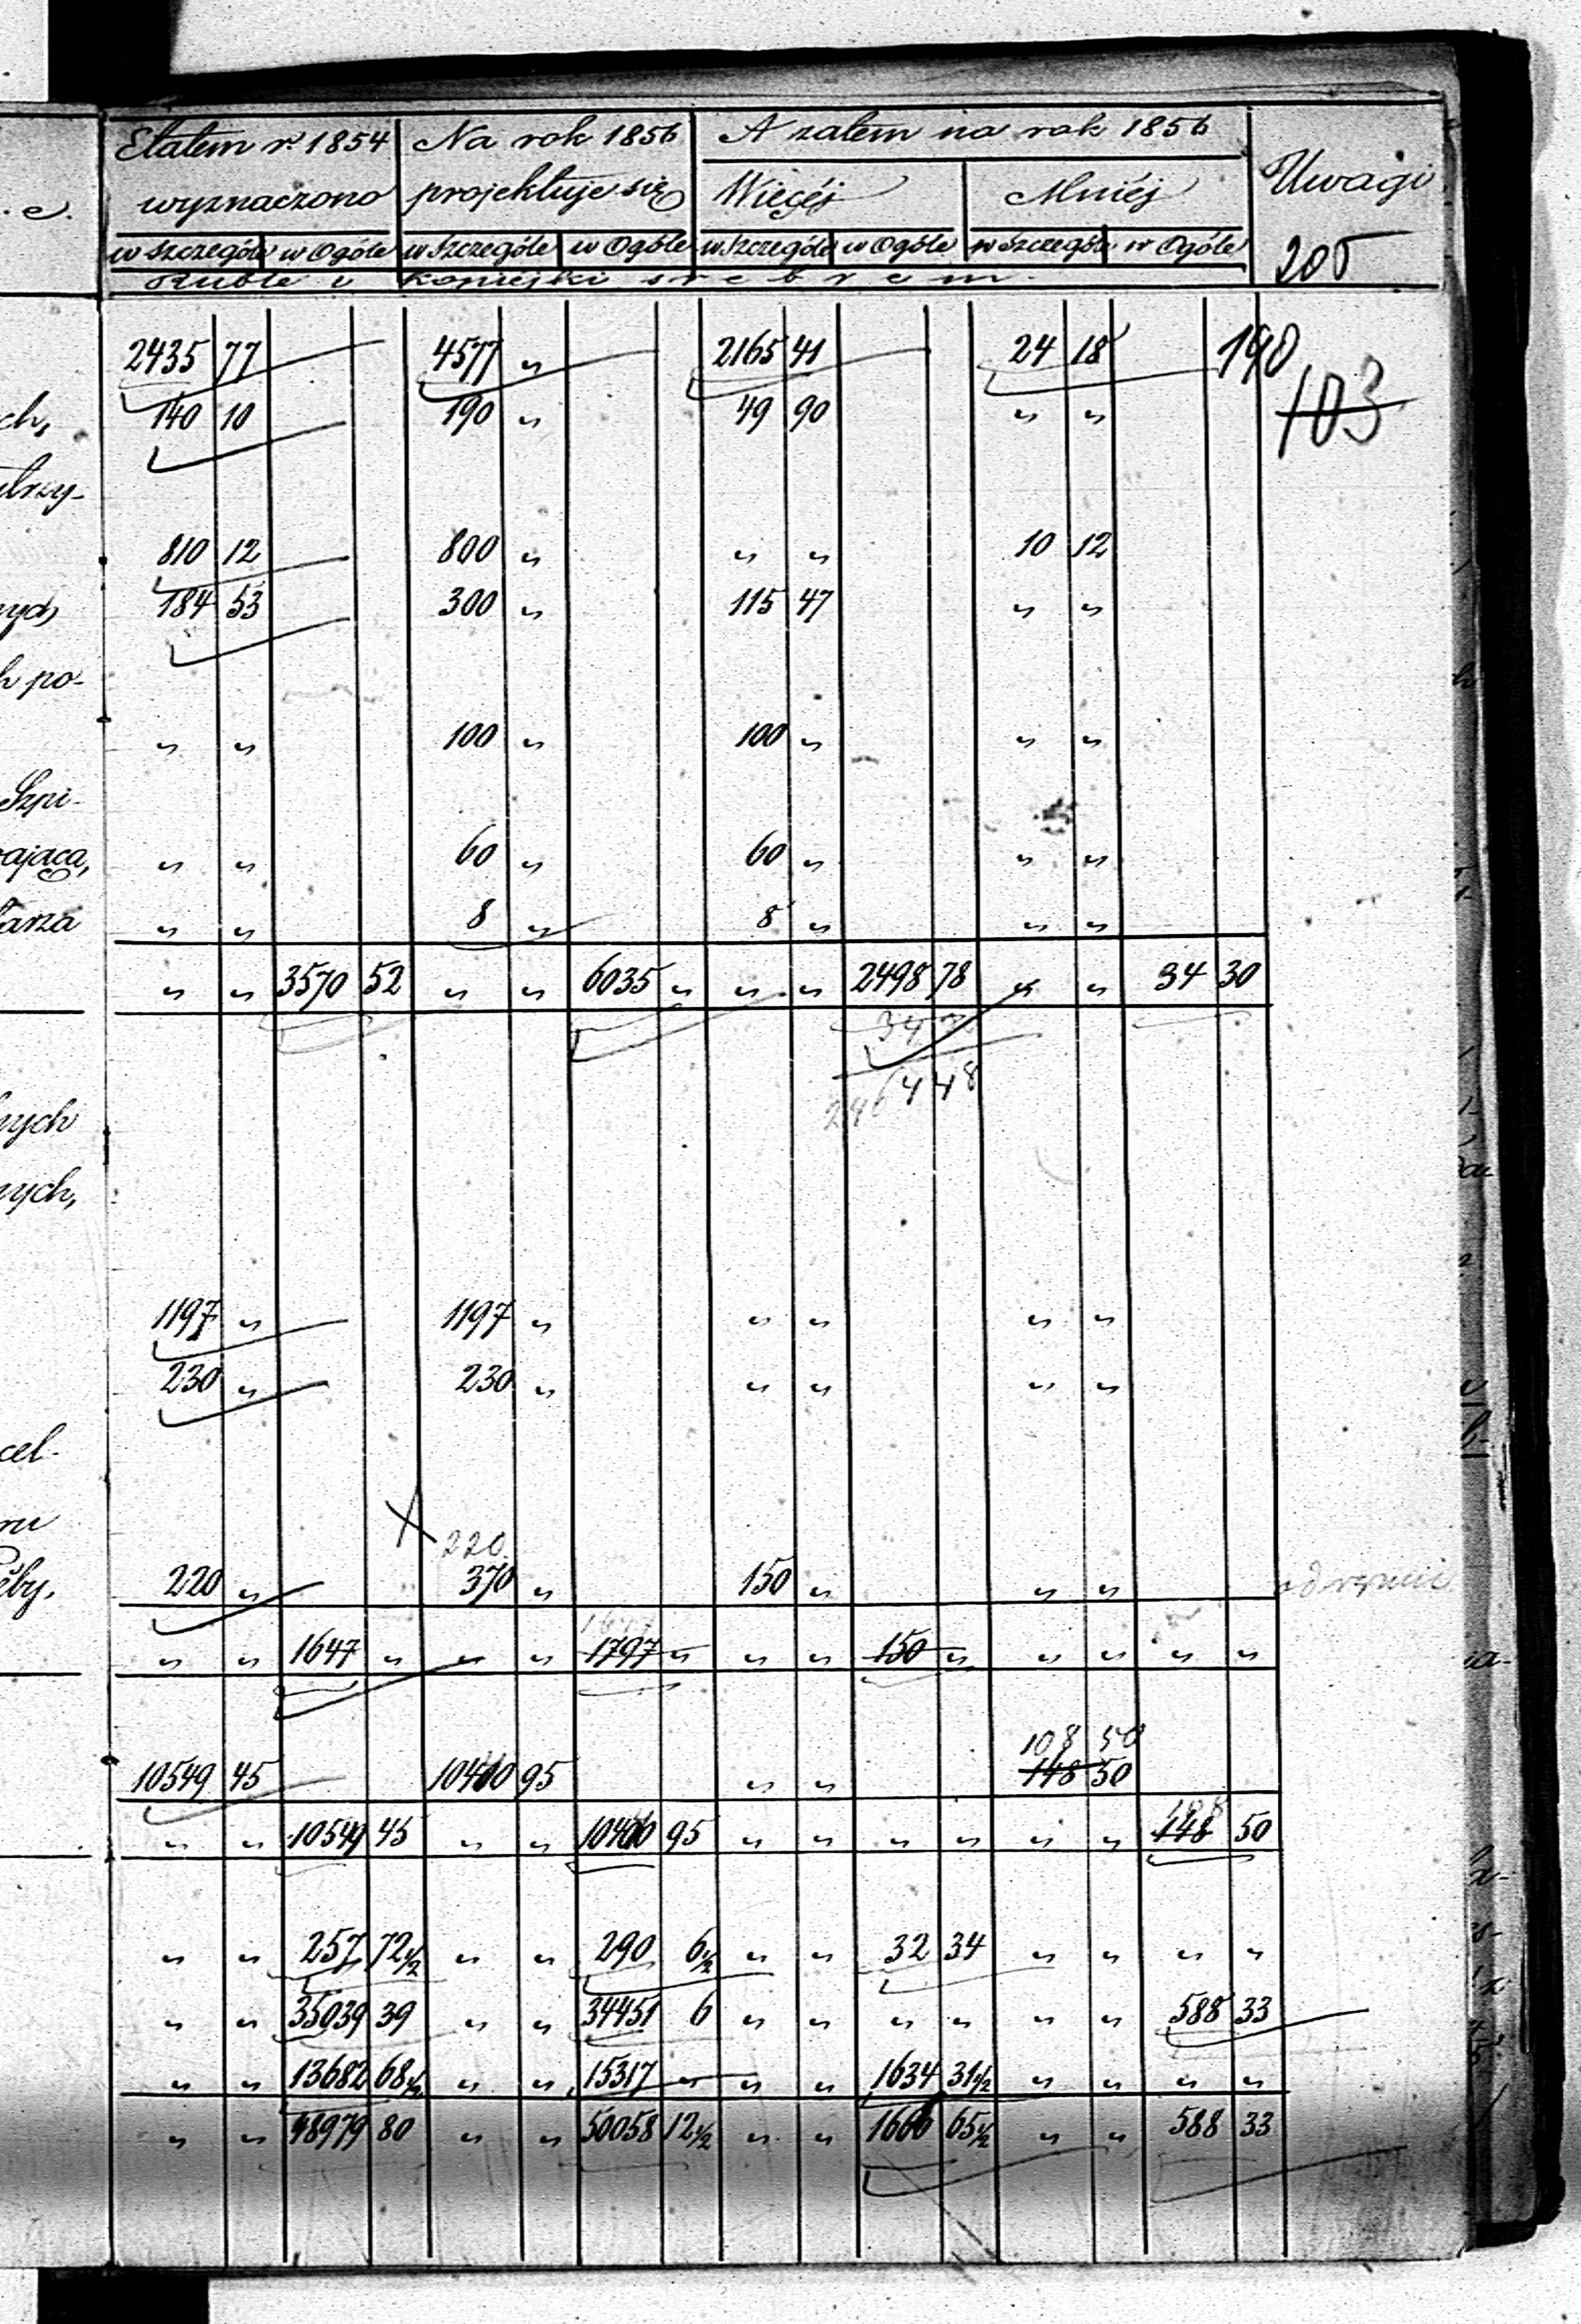 Etatem r. 1854 Na rok 1856 A zatem na rok 1856 Uwagi
wyznaczono projektuje się Więcéj Mniéj
w szczególe w Ogóle w szczególe w Ogóle w szczególe w Ogóle w szczególe w Ogóle 205
Ruble i kopiejki srebrem.
2435 77 4577 " 2165 41 24 18 190
ch, 140 10 190 " 49 90 " " 103
trzy-
810 12 800 " " " 10 12
nych 184 53 300 " 115 47 " "
h po-
" " 100 " 100 " " "
Szpi-
ająca, " " 60 " 60 " " "
arza " " 8 " 8 " " "
" " 3570 52 " " 6035 " " " 2498 78 " " 34 30
34 3
2464 48
nych
nych,
1197 " 1197 " " " " "
230 " 230 " " " " "
cel-
ru 220
by, 220 " 370 " 150 " " "
" " 1647 " " " 1797 " " " 150 " " " " "
108 50
10549 45 10400 95 " " 148 50
" " 10549 45 " " 10400 95 " " " " " " 148 50
" " 257 72½ " " 290 6½ " " 32 34 " " " "
" " 35039 39 " " 34451 6 " " " " " " 588 33
" " 13682 68½ " " 15317 " " " 1634 31½ " " " "
" " 48979 80 " " 50058 12½ " " 1666 65½ " " 588 33